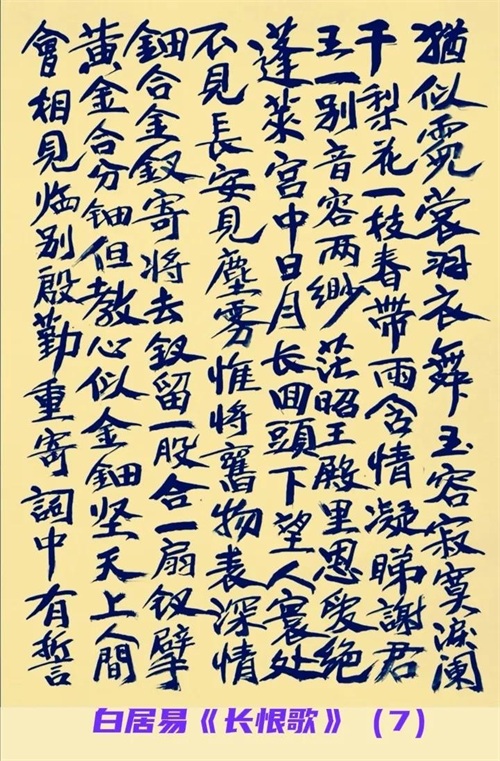 猶似霓裳羽衣舞玉容寂寞淚闌
干梨花一枝春帶雨含情凝睇謝君
王一别音容两缈茫昭王殿里恩爱绝
蓬莱宫中日月长回頭下望人寰处
不見長安見塵雾惟将舊物表深情
鈿合金釵寄将去釵留一股合一扇釵擘
黄金合分鈿但教心似金鈿坚天上人間
會相見临别殷勤重寄詞中有誓
白居易《长恨歌》（7）